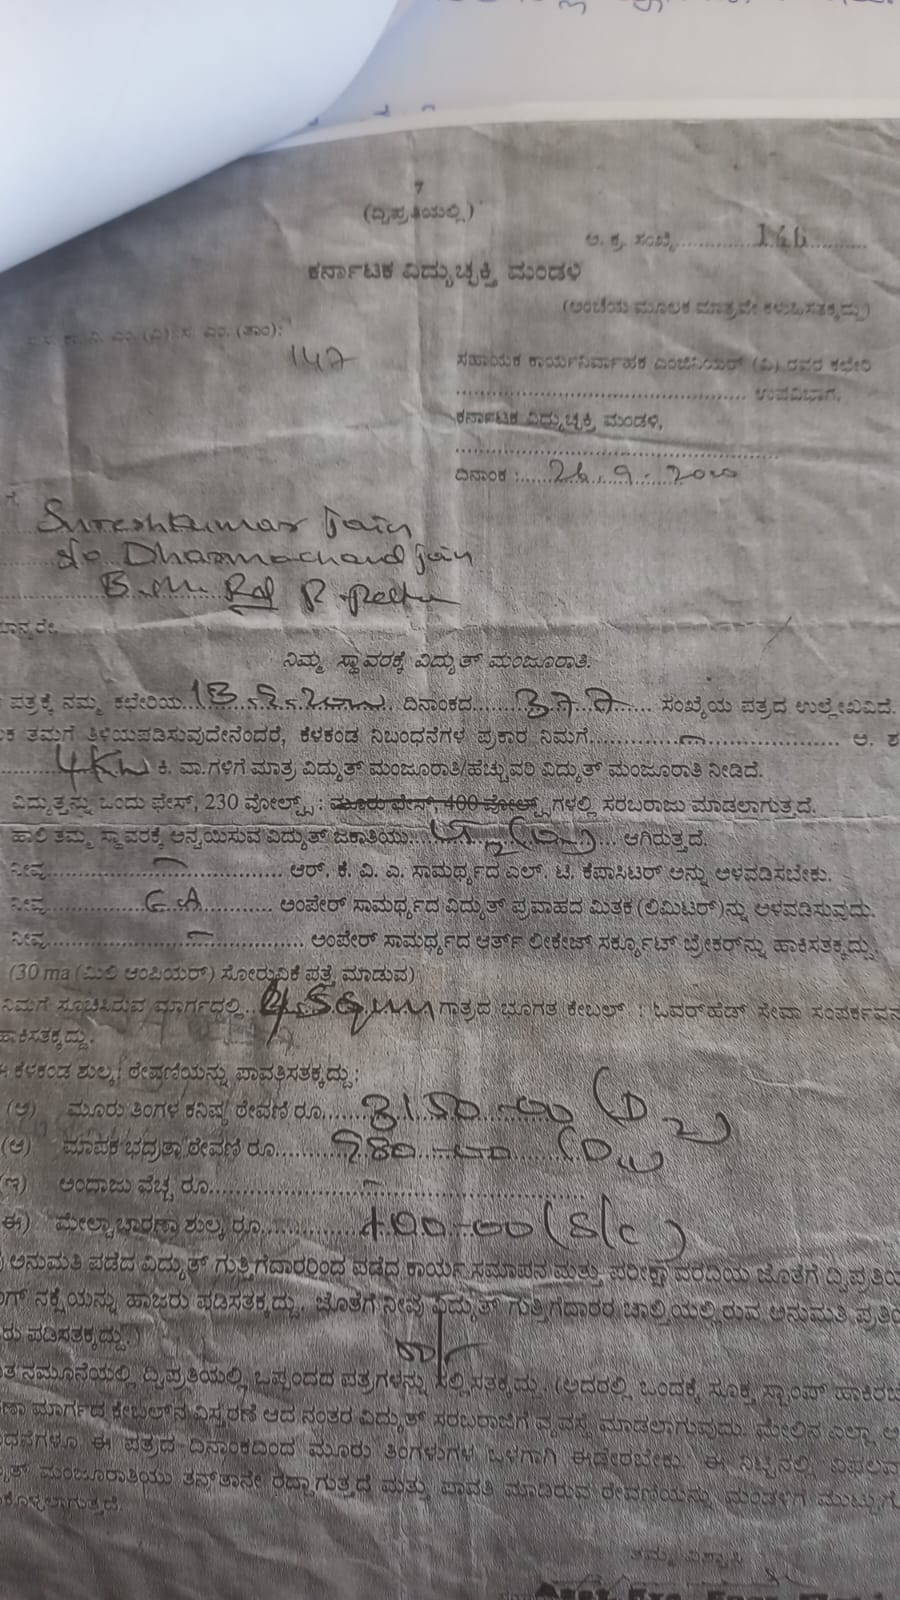 7
(ದ್ವಿಪ್ರತಿಯಲ್ಲಿ)
ಅ. ಕ್ರ. ಸಂಖ್ಯೆ 146
ಕರ್ನಾಟಕ ವಿದ್ಯುಚ್ಛಕ್ತಿ ಮಂಡಳಿ
(ಅಂಚೆಯ ಮೂಲಕ ಮಾತ್ರವೇ ಕಳುಹಿಸತಕ್ಕದ್ದು)
147
ಸಹಾಯಕ ಕಾರ್ಯನಿರ್ವಾಹಕ ಎಂಜಿನಿಯರ್ (ವಿ) ರವರ ಕಛೇರಿ
ಉಪವಿಭಾಗ,
ಕರ್ನಾಟಕ ವಿದ್ಯುಚ್ಛಕ್ತಿ ಮಂಡಳಿ,
ದಿನಾಂಕ : 26.9.2000
ಗೆ
Sureshkumar Jain
S/o Dharmachand Jain
B.M. Rd
ನಿಮ್ಮ ಸ್ಥಾವರಕ್ಕೆ ವಿದ್ಯುತ್ ಮಂಜೂರಾತಿ.
ಪತ್ರಕ್ಕೆ ನಮ್ಮ ಕಛೇರಿಯ ದಿನಾಂಕದ 377 ಸಂಖ್ಯೆಯ ಪತ್ರದ ಉಲ್ಲೇಖವಿದೆ.
ತಮಗೆ ತಿಳಿಯಪಡಿಸುವುದೇನೆಂದರೆ, ಕೆಳಕಂಡ ನಿಬಂಧನೆಗಳ ಪ್ರಕಾರ ನಿಮಗೆ - ಅ. ಶ
4KW ಕಿ. ವಾ.ಗಳಿಗೆ ಮಾತ್ರ ವಿದ್ಯುತ್ ಮಂಜೂರಾತಿ/ಹೆಚ್ಚುವರಿ ವಿದ್ಯುತ್ ಮಂಜೂರಾತಿ ನೀಡಿದೆ.
ವಿದ್ಯುತ್ತನ್ನು ಒಂದು ಫೇಸ್, 230 ವೋಲ್ಟ್ಸ್ : ಮೂರು ಫೇಸ್, 400 ವೋಲ್ಟ್ಸ್‌ಗಳಲ್ಲಿ ಸರಬರಾಜು ಮಾಡಲಾಗುತ್ತದೆ.
ಹಾಲಿ ತಮ್ಮ ಸ್ಥಾವರಕ್ಕೆ ಅನ್ವಯಿಸುವ ವಿದ್ಯುತ್ ಜಕಾತಿಯು ಆಗಿರುತ್ತದೆ.
ನೀವು - ಆರ್. ಕೆ. ವಿ. ಎ. ಸಾಮರ್ಥ್ಯದ ಎಲ್. ಟಿ. ಕೆಪಾಸಿಟರ್ ಅನ್ನು ಅಳವಡಿಸಬೇಕು.
ನೀವು ಅಂಪೇರ್ ಸಾಮರ್ಥ್ಯದ ವಿದ್ಯುತ್ ಪ್ರವಾಹದ ಮಿತಕ (ಲಿಮಿಟರ್)ನ್ನು ಅಳವಡಿಸುವುದು.
ನೀವು - ಅಂಪೇರ್ ಸಾಮರ್ಥ್ಯದ ಆರ್ತ್ ಲೀಕೇಜ್ ಸರ್ಕ್ಯೂಟ್ ಬ್ರೇಕರ್‌ನ್ನು ಹಾಕಿಸತಕ್ಕದ್ದು.
(30 ma (ಮಿಲಿ ಆಂಪಿಯರ್) ಸೋರುವಿಕೆ ಪತ್ತೆ ಮಾಡುವ)
ನಿಮಗೆ ಸೂಚಿಸಿರುವ ಮಾರ್ಗದಲ್ಲಿ 4 Sqmm ಗಾತ್ರದ ಭೂಗತ ಕೇಬಲ್ : ಓವರ್‌ಹೆಡ್ ಸೇವಾ ಸಂಪರ್ಕವನ
ಹಾಕಿಸತಕ್ಕದ್ದು.
ಈ ಕೆಳಕಂಡ ಶುಲ್ಕ/ ಠೇವಣಿಯನ್ನು ಪಾವತಿಸತಕ್ಕದ್ದು:
(ಅ) ಮೂರು ತಿಂಗಳ ಕನಿಷ್ಠ ಠೇವಣಿ ರೂ. 3150-00
(ಆ) ಮಾಪಕ ಭದ್ರತಾ ಠೇವಣಿ ರೂ. 980-00
(ಇ) ಅಂದಾಜು ವೆಚ್ಚ ರೂ. -
ಈ) ಮೇಲ್ವಿಚಾರಣಾ ಶುಲ್ಕ ರೂ. 400-00 (S/C)
ಅನುಮತಿ ಪಡೆದ ವಿದ್ಯುತ್ ಗುತ್ತಿಗೆದಾರರಿಂದ ಪಡೆದ ಕಾರ್ಯ ಸಮಾಪನ ಮತ್ತು ಪರೀಕ್ಷಾ ವರದಿಯ ಜೊತೆಗೆ ದ್ವಿಪ್ರತಿಯ
ನಕ್ಷೆಯನ್ನು ಹಾಜರು ಪಡಿಸತಕ್ಕದ್ದು. ಜೊತೆಗೆ ನೀವು ವಿದ್ಯುತ್ ಗುತ್ತಿಗೆದಾರರ ಚಾಲ್ತಿಯಲ್ಲಿರುವ ಅನುಮತಿ ಪ್ರತಿಯ
ರು ಪಡಿಸತಕ್ಕದ್ದು.)
ನಮೂನೆಯಲ್ಲಿ ದ್ವಿಪ್ರತಿಯಲ್ಲಿ ಒಪ್ಪಂದದ ಪತ್ರಗಳನ್ನು ಸಲ್ಲಿಸತಕ್ಕದ್ದು. (ಅದರಲ್ಲಿ ಒಂದಕ್ಕೆ ಸೂಕ್ತ ಸ್ಟಾಂಪ್ ಹಾಕಿರಬೇ
ಮಾರ್ಗದ ಕೇಬಲ್‌ನ ವಿಸ್ತರಣೆ ಆದ ನಂತರ ವಿದ್ಯುತ್ ಸರಬರಾಜಿಗೆ ವ್ಯವಸ್ಥೆ ಮಾಡಲಾಗುವುದು. ಮೇಲಿನ ಎಲ್ಲಾ
ಈ ಪತ್ರದ ದಿನಾಂಕದಿಂದ ಮೂರು ತಿಂಗಳುಗಳ ಒಳಗಾಗಿ ಈಡೇರಬೇಕು. ಈ ನಿಟ್ಟಿನಲ್ಲಿ ವಿಫಲವಾ
ಮಂಜೂರಾತಿಯು ತನ್‌ತಾನೇ ರದ್ದಾಗುತ್ತದೆ ಮತ್ತು ಪಾವತಿ ಮಾಡಿರುವ ಠೇವಣಿಯನ್ನು ಮಂಡಳಿಗೆ ಮುಟ್ಟುಗೋ
ತಮ್ಮ ವಿಶ್ವಾಸಿ